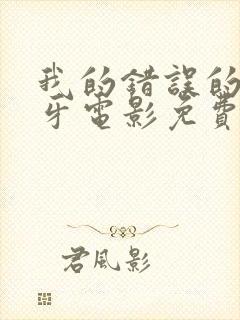 我的错误的
牙電影免費
君風影